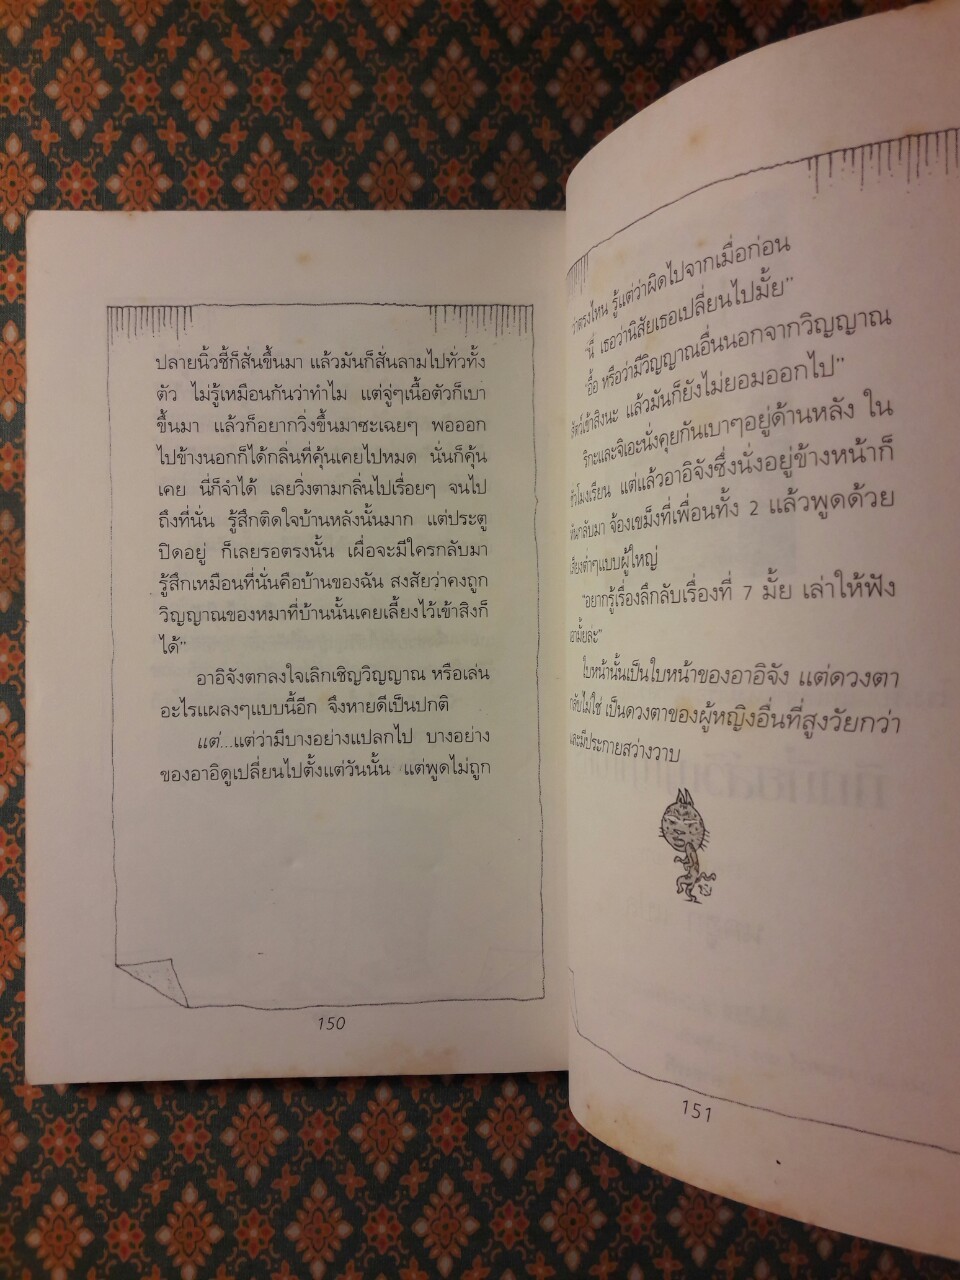 ปลายนิ้วชี้ก็สั่นขึ้นมา แล้วมันก็สั่นลามไปทั่วทั้ง
ตัว ไม่รู้เหมือนกันว่าทำไม แต่จู่ๆเนื้อตัวก็เบา
ขึ้นมา แล้วก็อยากวิ่งขึ้นมาซะเฉยๆ พอออก
ไปข้างนอกก็ได้กลิ่นที่คุ้นเคยไปหมด นั่นก็คุ้น
เคย นี่ก็จำได้ เลยวิ่งตามกลิ่นไปเรื่อยๆ จนไป
ถึงที่นั่น รู้สึกติดใจบ้านหลังนั้นมาก แต่ประตู
ปิดอยู่ ก็เลยรอตรงนั้น เผื่อจะมีใครกลับมา
รู้สึกเหมือนที่นั่นคือบ้านของฉัน สงสัยว่าคงถูก
วิญญาณของหมาที่บ้านนั้นเคยเลี้ยงไว้เข้าสิงก็
ได้”
อาอิจังตกลงใจเลิกเชิญวิญญาณ หรือเล่น
อะไรแผลงๆแบบนี้อีก จึงหายดีเป็นปกติ
แต่...แต่ว่ามีบางอย่างแปลกไป บางอย่าง
ของอาอิดูเปลี่ยนไปตั้งแต่วันนั้น แต่พูดไม่ถูก
150
ว่าตรงไหน รู้แต่ว่าผิดไปจากเมื่อก่อน
“นี่ เธอว่านิสัยเธอเปลี่ยนไปมั้ย”
“อื้อ หรือว่ามีวิญญาณอื่นนอกจากวิญญาณ
สัตว์เข้าสิงนะ แล้วมันก็ยังไม่ยอมออกไป”
ริกะและจิเอะนั่งคุยกันเบาๆอยู่ด้านหลัง ใน
ชั่วโมงเรียน แต่แล้วอาอิจังซึ่งนั่งอยู่ข้างหน้าก็
หันกลับมา จ้องเขม็งที่เพื่อนทั้ง 2 แล้วพูดด้วย
เสียงต่ำๆแบบผู้ใหญ่
“อยากรู้เรื่องลึกลับเรื่องที่ 7 มั้ย เล่าให้ฟัง
เอามั้ยล่ะ”
ใบหน้านั้นเป็นใบหน้าของอาอิจัง แต่ดวงตา
กลับไม่ใช่ เป็นดวงตาของผู้หญิงอื่นที่สูงวัยกว่า
และมีประกายสว่างวาบ
151